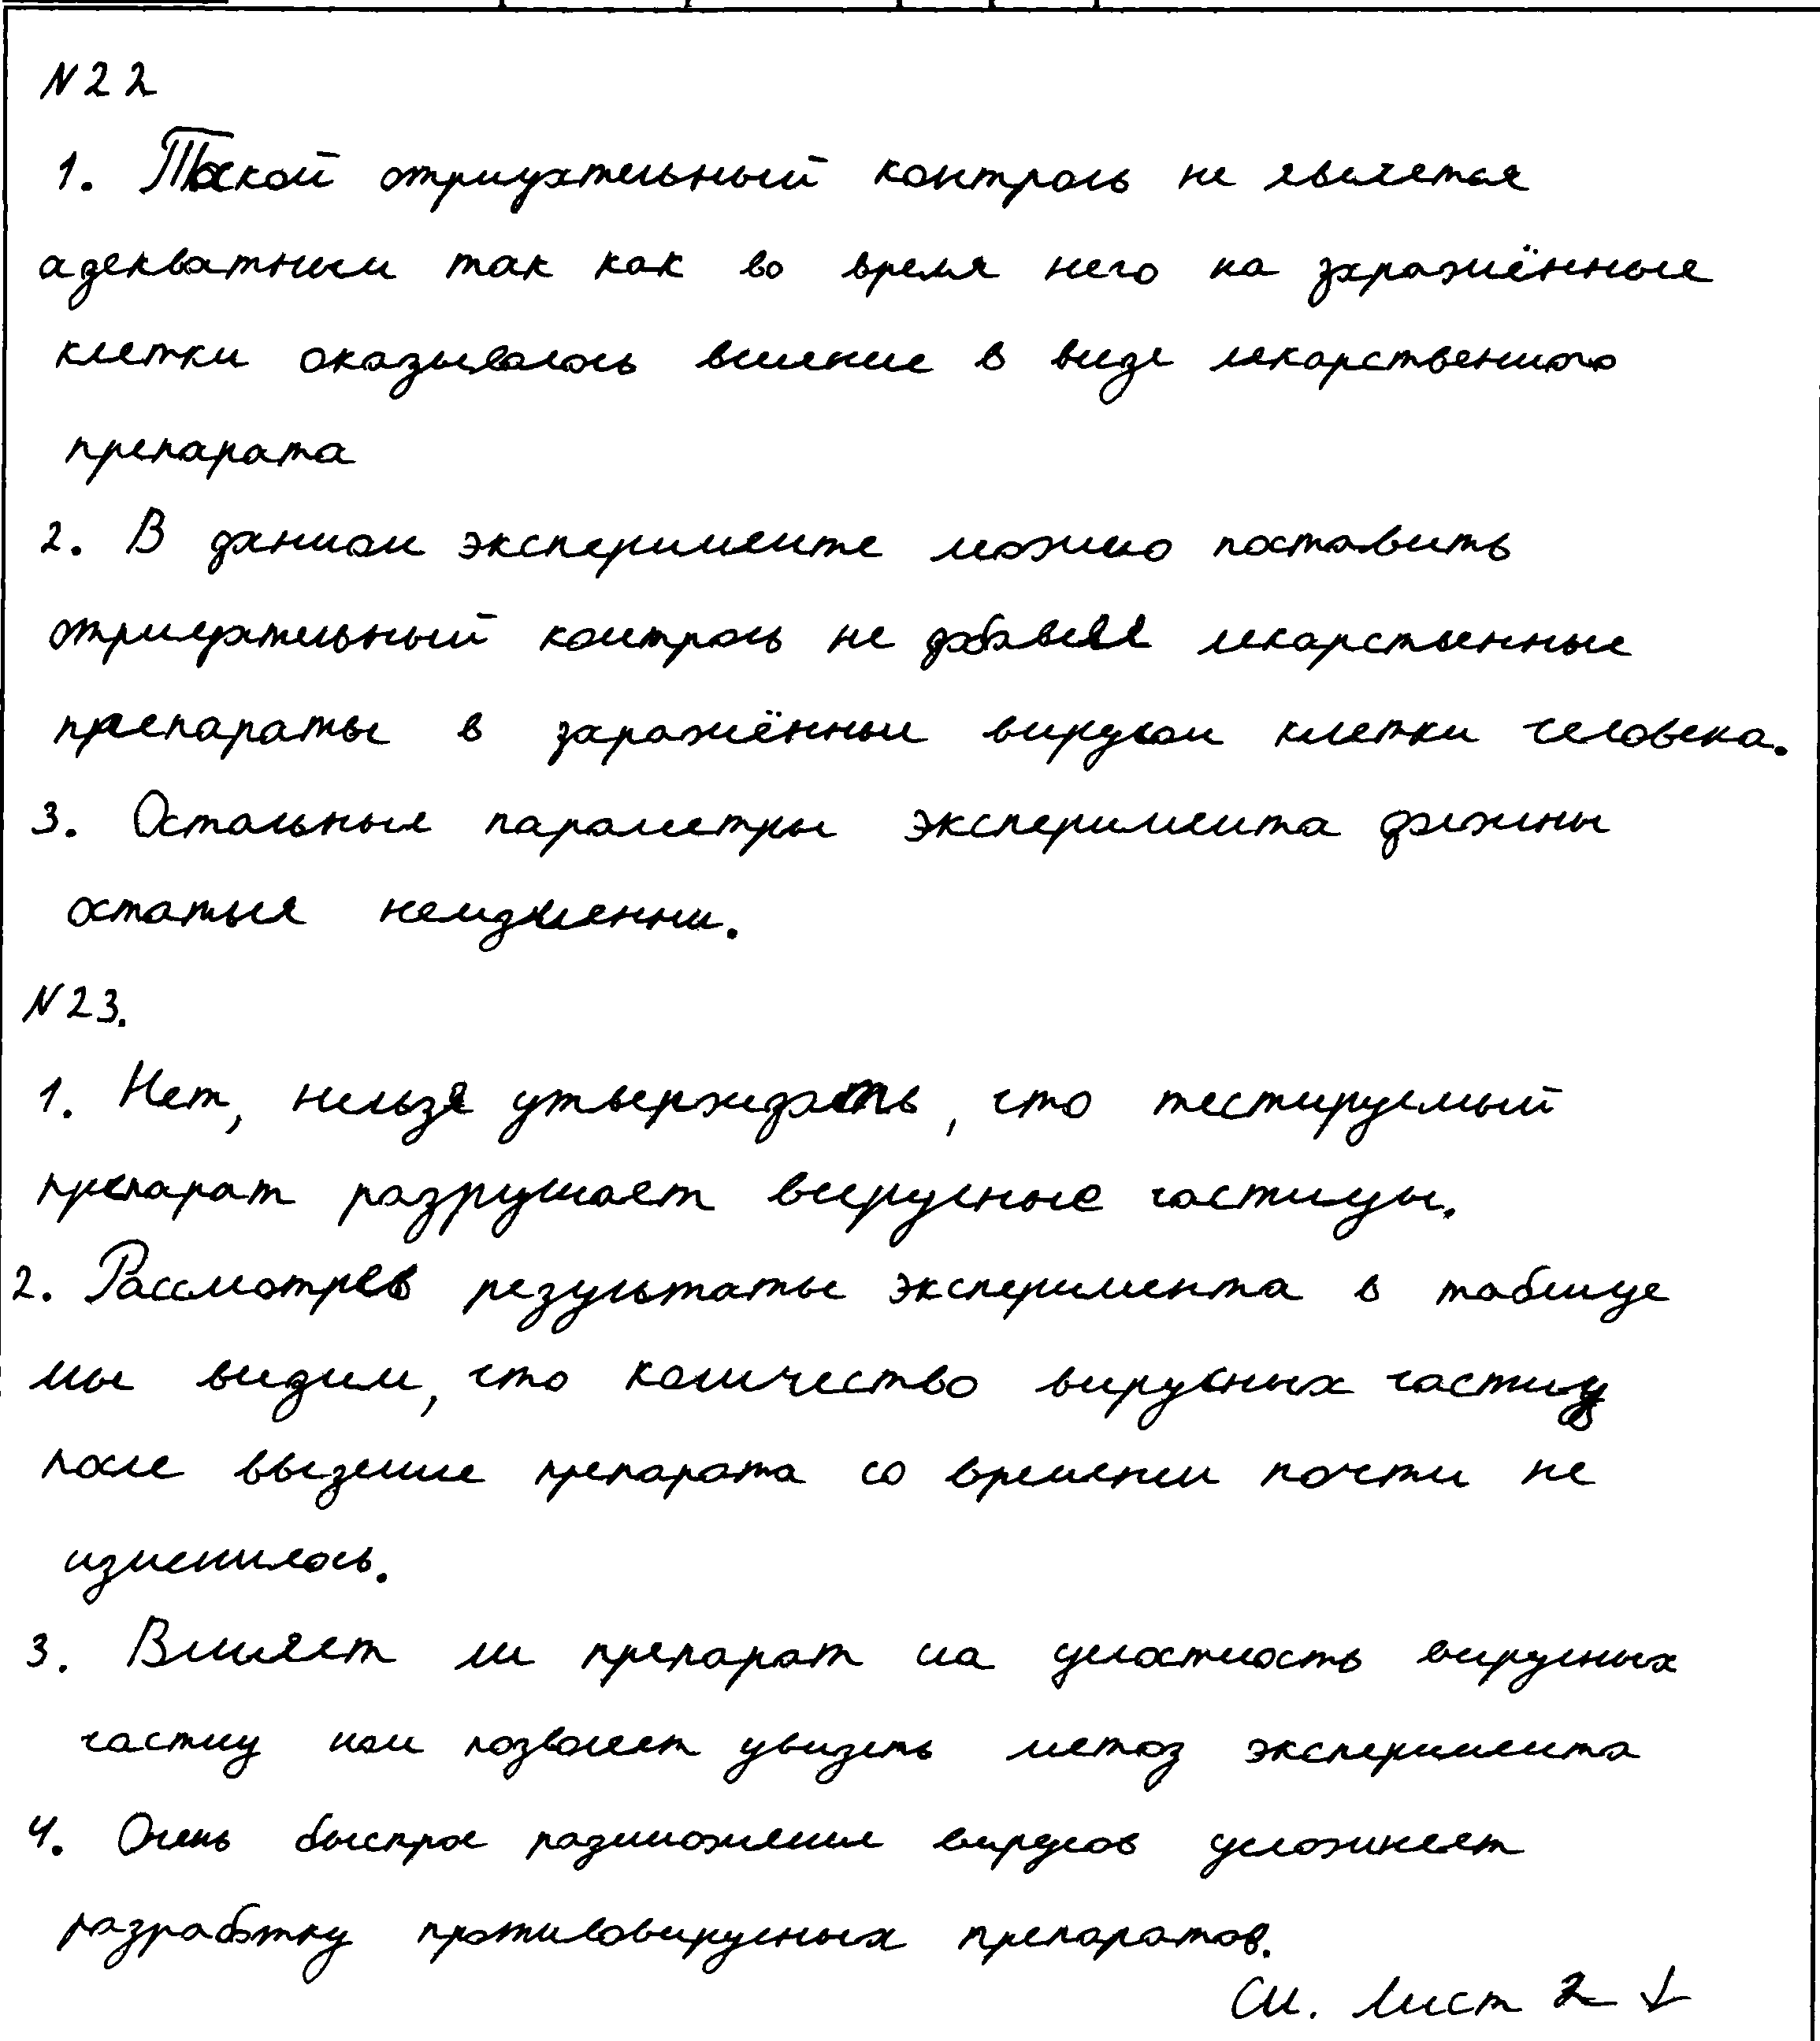 N22
1. Такой отрицательный контроль не является
адекватным так как во время него на заражённые
клетки оказывалось влияние в виде лекарственного
препарата
2. В данном эксперименте можно поставить
отрицательный контроль не добавляя лекарственные
препараты в заражённые вирусом клетки человека.
3. Остальные параметры эксперимента должны
остаться неизменны.
N23.
1. Нет, нельзя утверждать, что тестируемый
препарат разрушает вирусные частицы.
2. Рассмотрев результаты эксперимента в таблице
мы видим, что количество вирусных частиц
после препарата со времени почти не
изменилось.
3. Влияет ли препарат на целостность вирусных
частиц нам позволяет увидеть метод эксперимента
4. Очень быстрое размножение вирусов усложняет
разработку противовирусных препаратов.
См. Лист 2 ↓